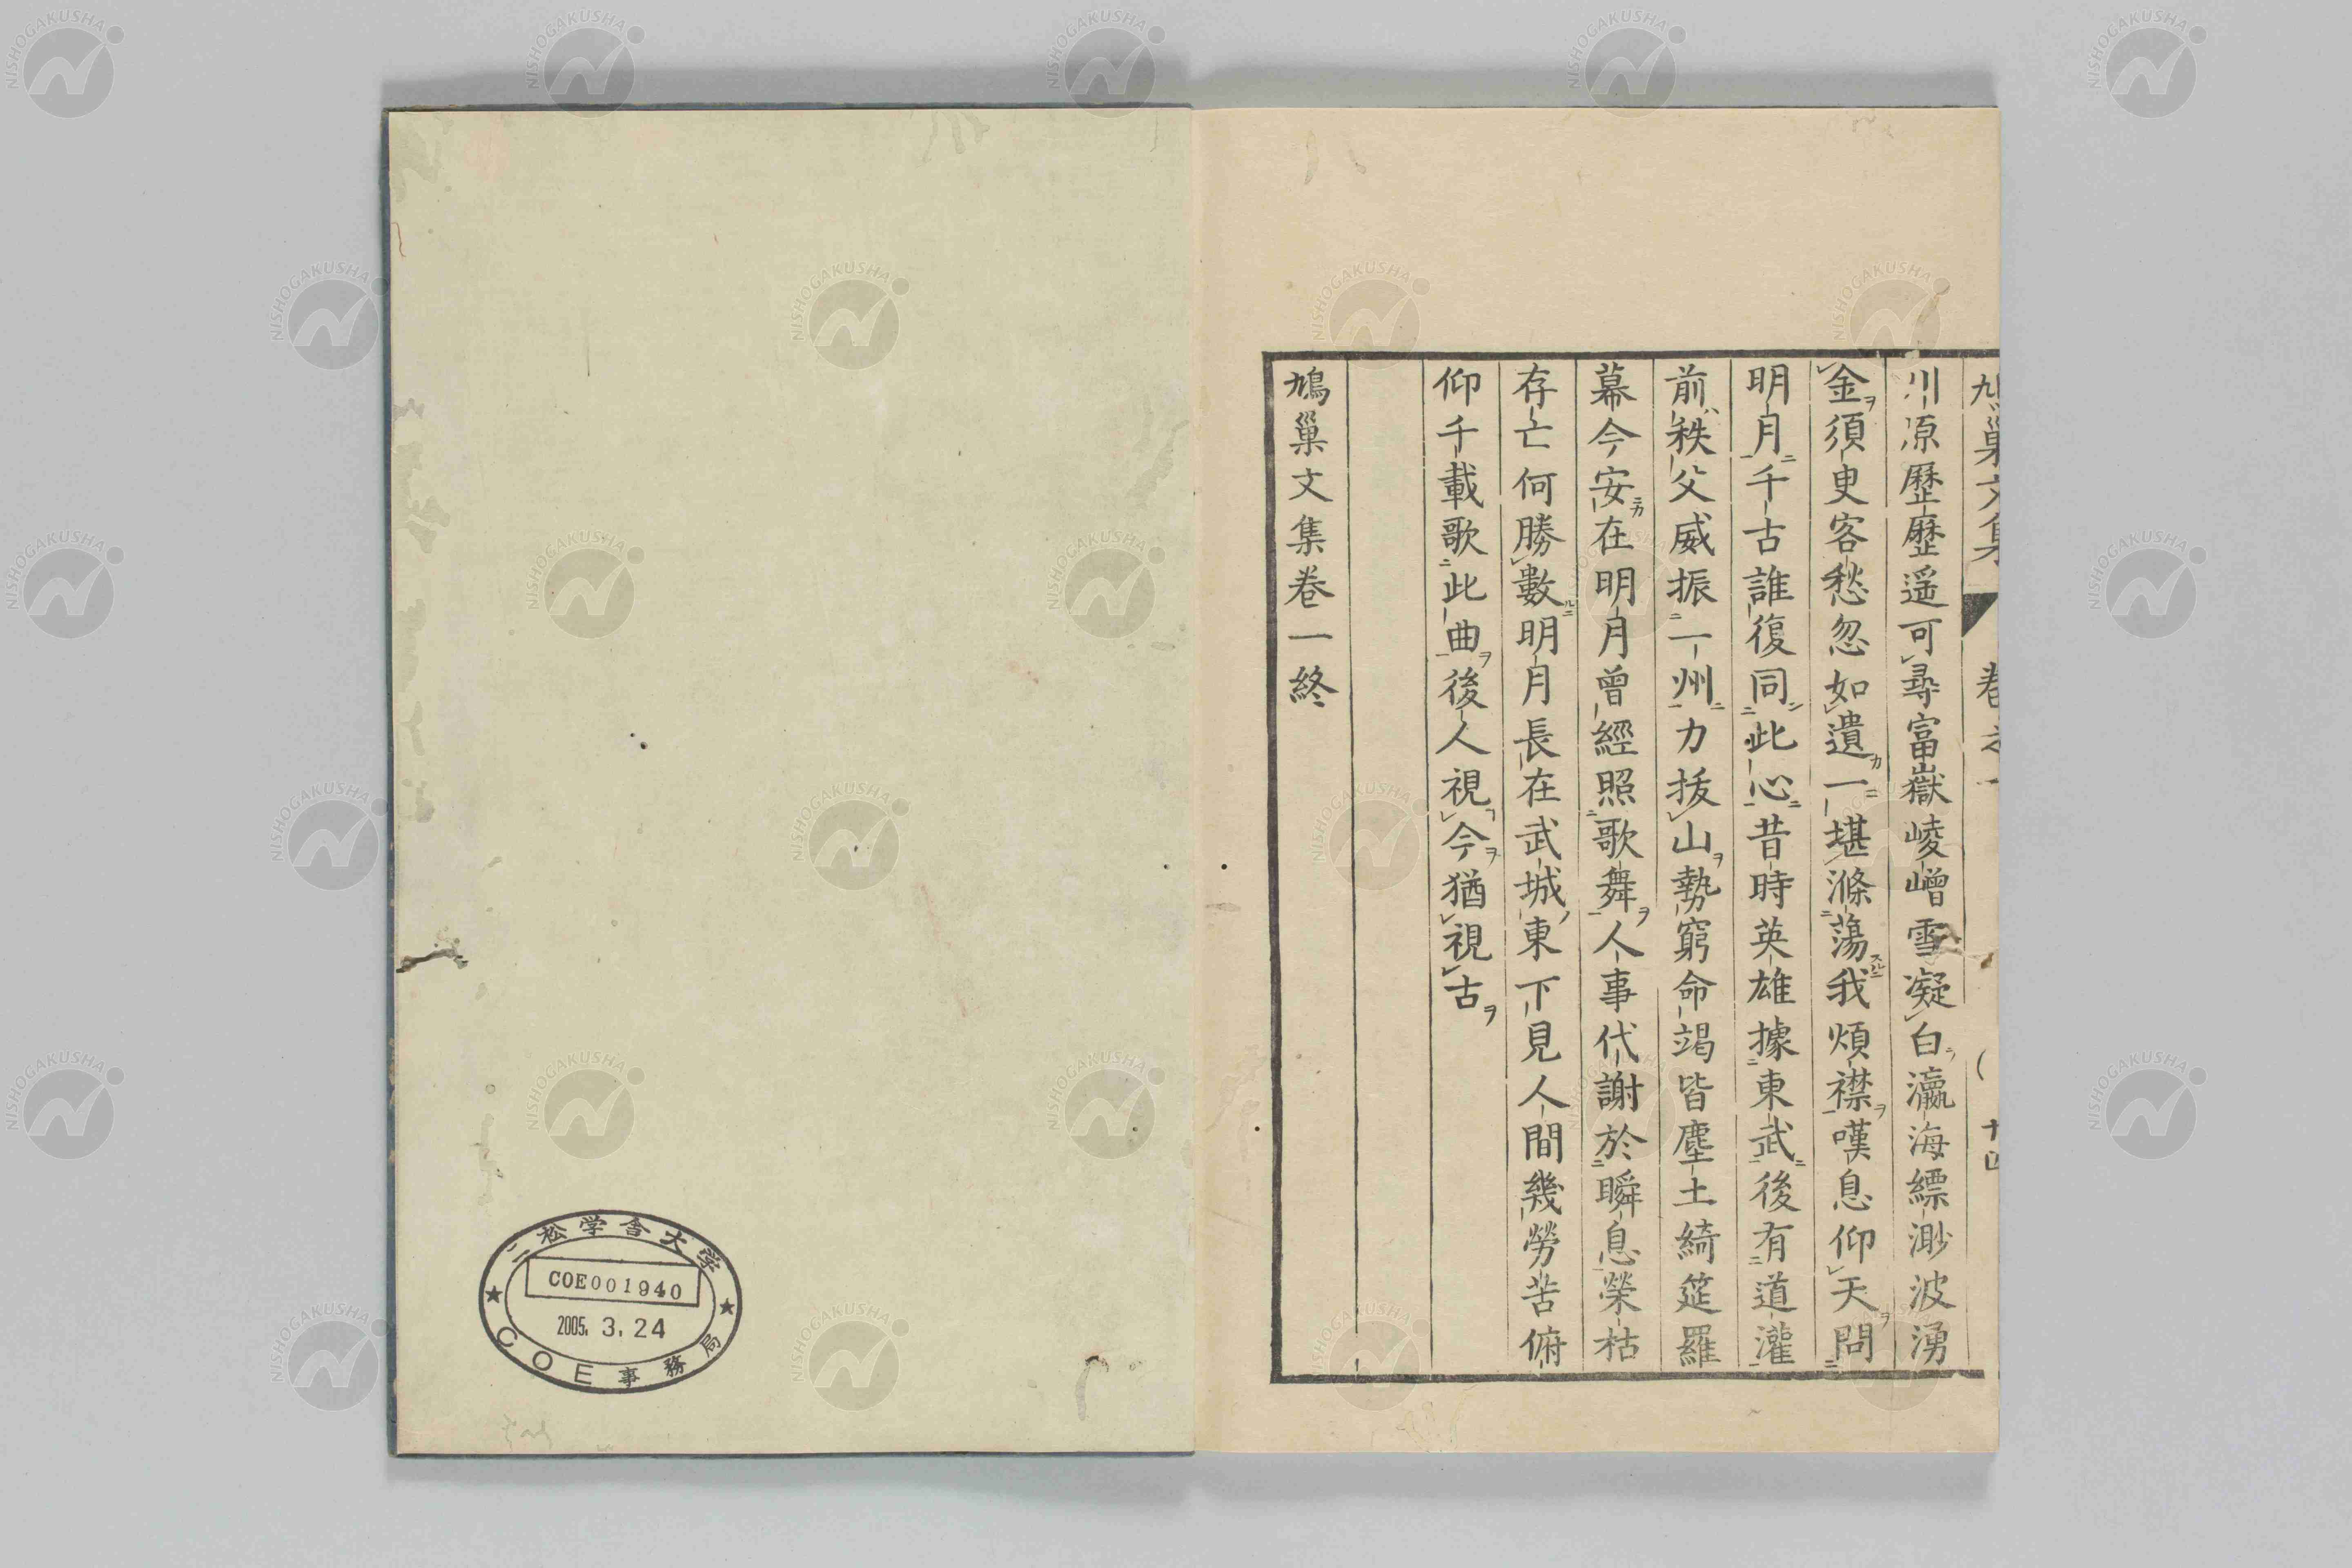 鳩巣文集 巻之一 十四
川原歷歷遥可尋富嶽崚嶒雪凝白瀛海縹渺波湧
金須臾客愁忽如遺一堪滌蕩我煩襟嘆息仰天問
明月千古誰復同此心昔時英雄據東武後有道灌
前秩父威振一州力拔山勢窮命竭皆塵土綺筵羅
幕今安在明月曾經照歌舞人事代謝於瞬息榮枯
存亡何勝數明月長在武城東下見人間幾勞苦俯
仰千載歌此曲後人視今猶視古
鳩巢文集卷一終
二松学舎大学
COE001940
2005. 3. 24
COE事務局
NISHOGAKUSHA